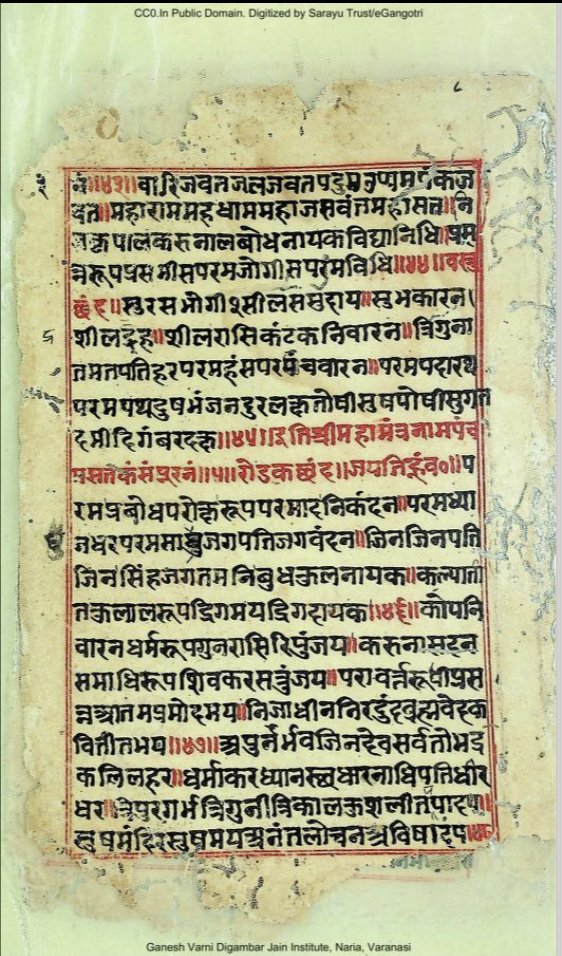 CC0.In Public Domain. Digitized by Sarayu Trust/eGangotri
८
नं॥४३॥वारिजवतजलजवतपदुम
महाराममहधाममहाजसवंतमहासत्व॥नि
जकृपालकसनालबोधनायकविद्यानिधि॥प्रस
न्नरूपप्रसमीसपरमजोगीसपरमविधि॥४४॥वस्तु
छंद॥सुरसभोगी२सीलससुदाय॥सुभकारन।
शीलद्रह॥शीलरासिकंटकनिवारन॥त्रिगुना
तमतपतिहरपरमहंसपरपंचवारन॥परमपदारथ
परमपथदुषभंजनदुरलक्षतोषीसुषपोषीसुगत
दमीदिगंबरदक्ष॥४५॥इतिश्रीमहामंत्रनामपंच
मसतकंसंपूरनं॥५॥रोडकछंद॥जयतिदेव०॥प
रमप्रबोधपरोक्षरूपपरमादनिकंदन॥परमध्या
नधरपरमसाधुजगपतिजगवंदन॥जिनजिनपति
जिनसिंहजगतमनिबुधकुलनायक॥कल्पाती
तकुलालरूपद्रिगमयद्रिगदायक॥४६॥कोपनि
वारनधर्मरूपगुनरासिरिपुंजय॥करुनासदन
समाधिरूपशिवकरसत्रुंजय॥परावर्त्तरूपीप्रस
न्नआतमप्रमोदमय॥निजाधीननिरदुंदब्रह्मवेदक
वितीतभय॥४७॥अपुनर्भवजिनदेवसर्वतोभद्र
कलिलहर॥धर्माकरध्यानस्थधारनाधिपतिधीर
धर॥त्रिपुरगर्भत्रिगुनीत्रिकालकुशलीतपादप॥
सुषमंदिरसुषमयअनंतलोचनअविषादप॥४८
Ganesh Varni Digambar Jain Institute, Naria, Varanasi